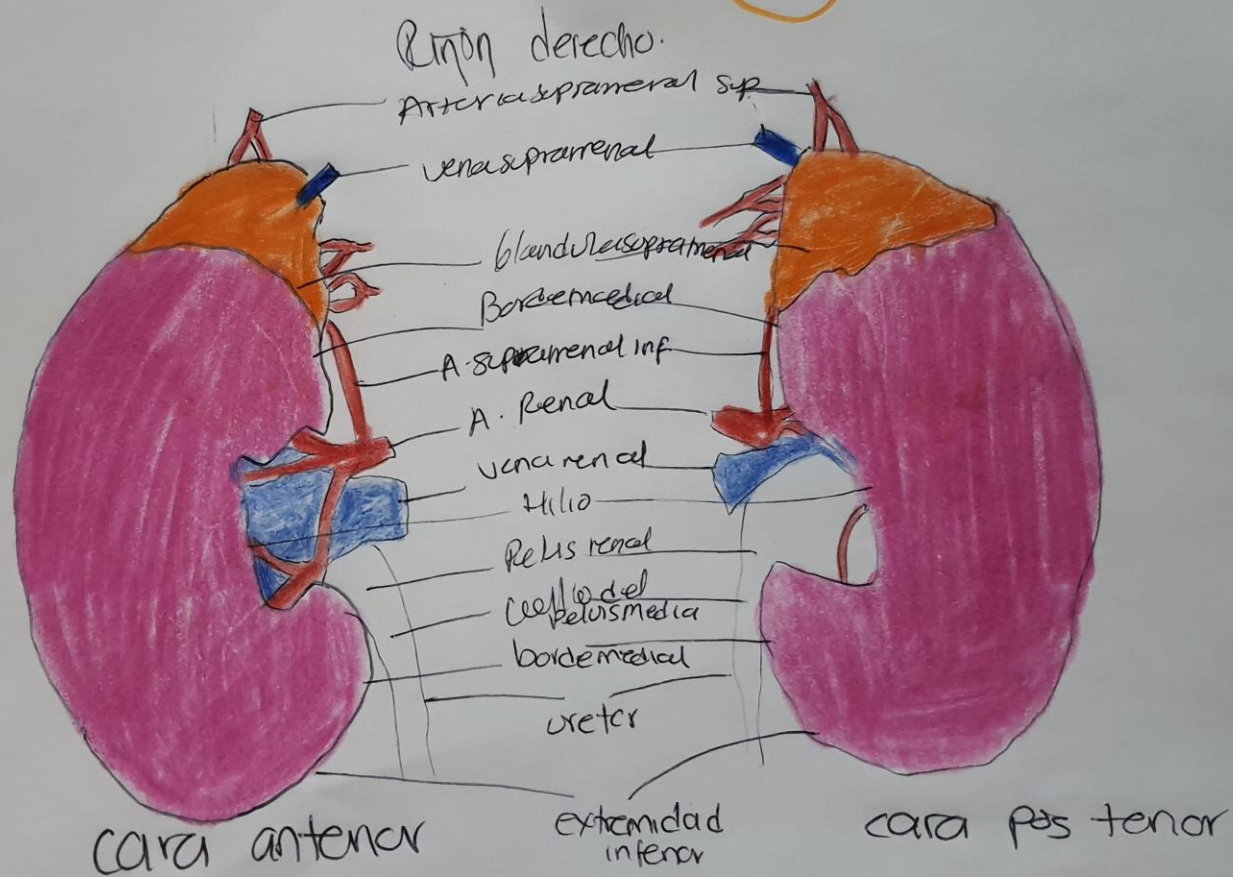 Riñón derecho.
Arteria suprarrenal sup
vena suprarrenal
Glandula suprarrenal
Borde medial
A. suprarrenal inf
A. Renal
vena renal
Hilio
Pelvis renal
del
pelvis media
borde medial
ureter
extremidad
inferior
cara anterior
cara posterior